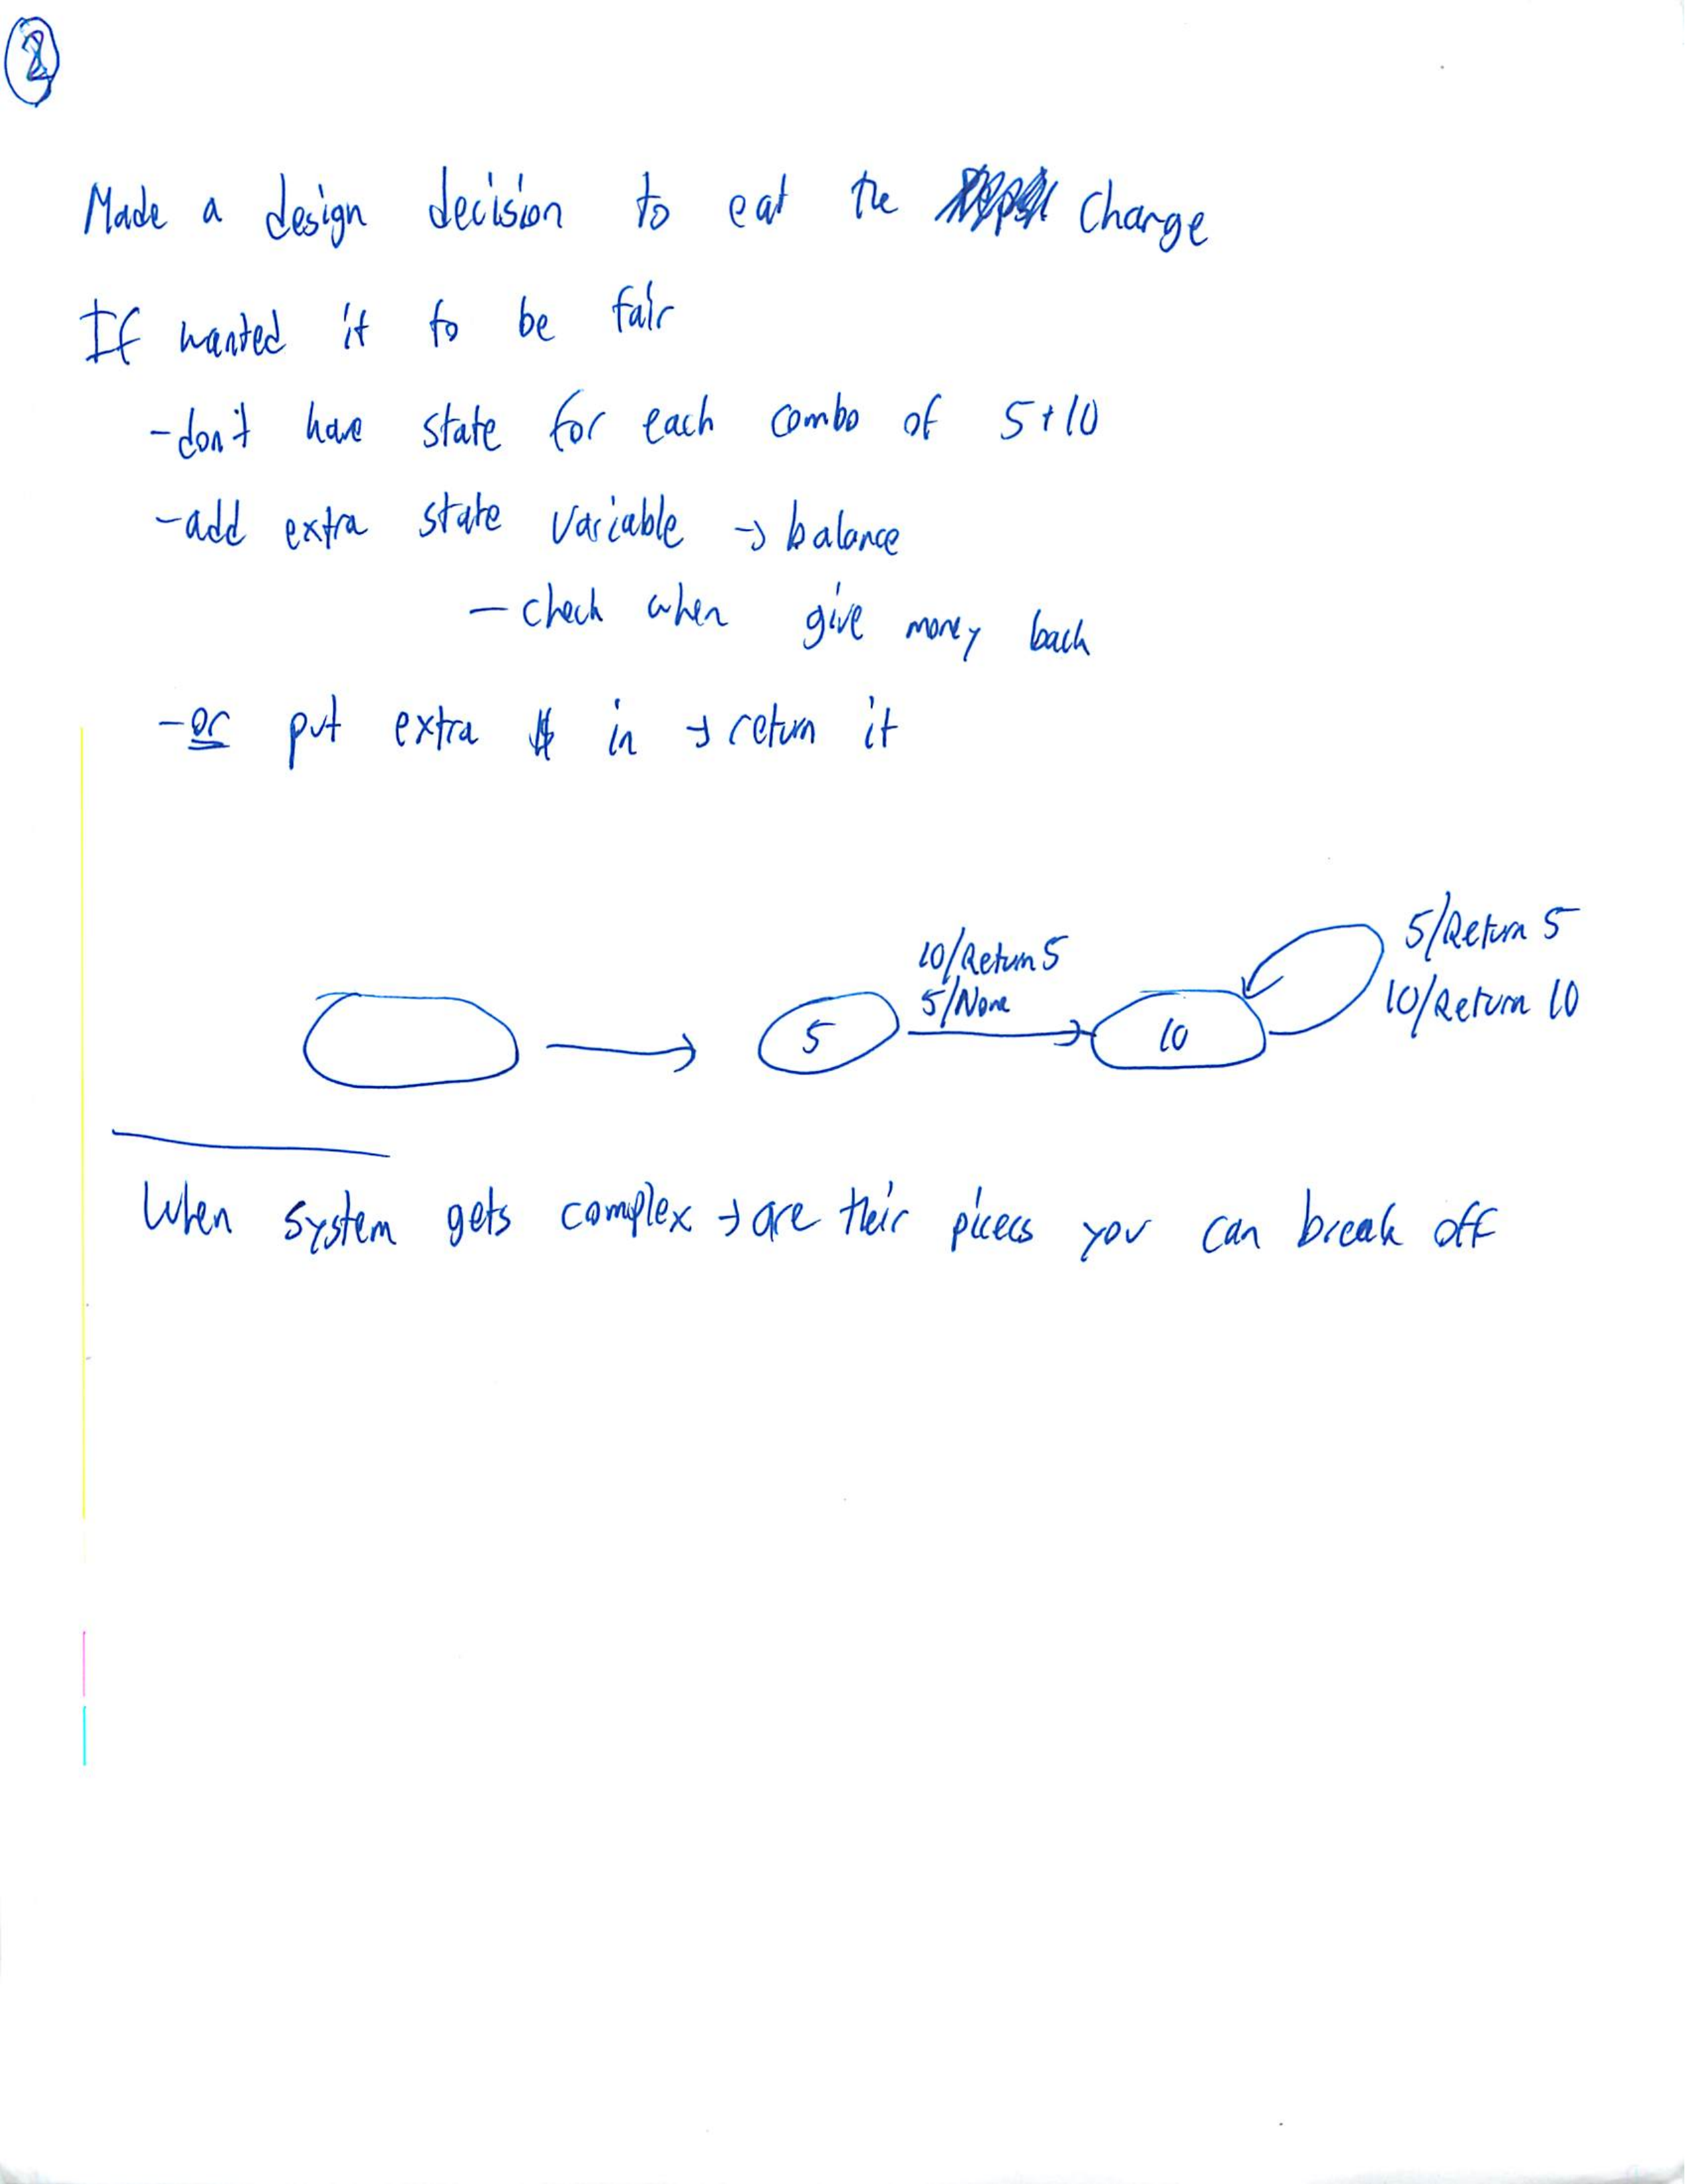 2
Made a design decision to eat the change
If wanted it to be fair
-don't have state for each combo of 5+10
-add extra state variable → balance
- check when give money back
-or put extra $ in → return it
10/Return 5
5/None
5/Return 5
10/Return 10
5
10
When system gets complex → are their pieces you can break off